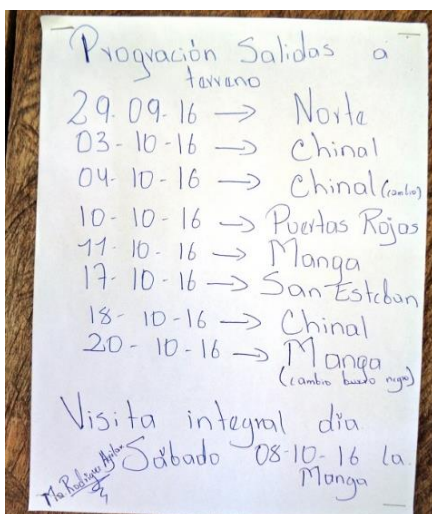 Progración Salidas a
terreno
29.09.16 → Norte
03-10-16 → Chinal
04-10-16 → Chinal (cambio)
10-10-16 → Puertas Rojas
11-10-16 → Manga
17-10-16 → San Esteban
18-10-16 → Chinal
20-10-16 → Manga
(cambio negro)
Visita integral día
Sábado 08-10-16 la
Manga
Rodriguez